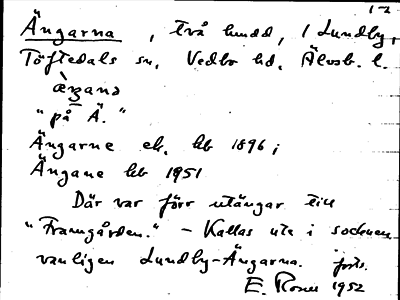 1-2
Ängarna, två hmdd, i Lundby,
Töftedals sn, Vedbo hd, Älvsb. l.
"på Ä."
Ängarne ek. kb 1896;
Ängane kb 1951
Där var förr utängar till
"Framgården." - Kallas ute i socknen
vanligen Lundby-Ängarna. forts.
E. Rosen 1952